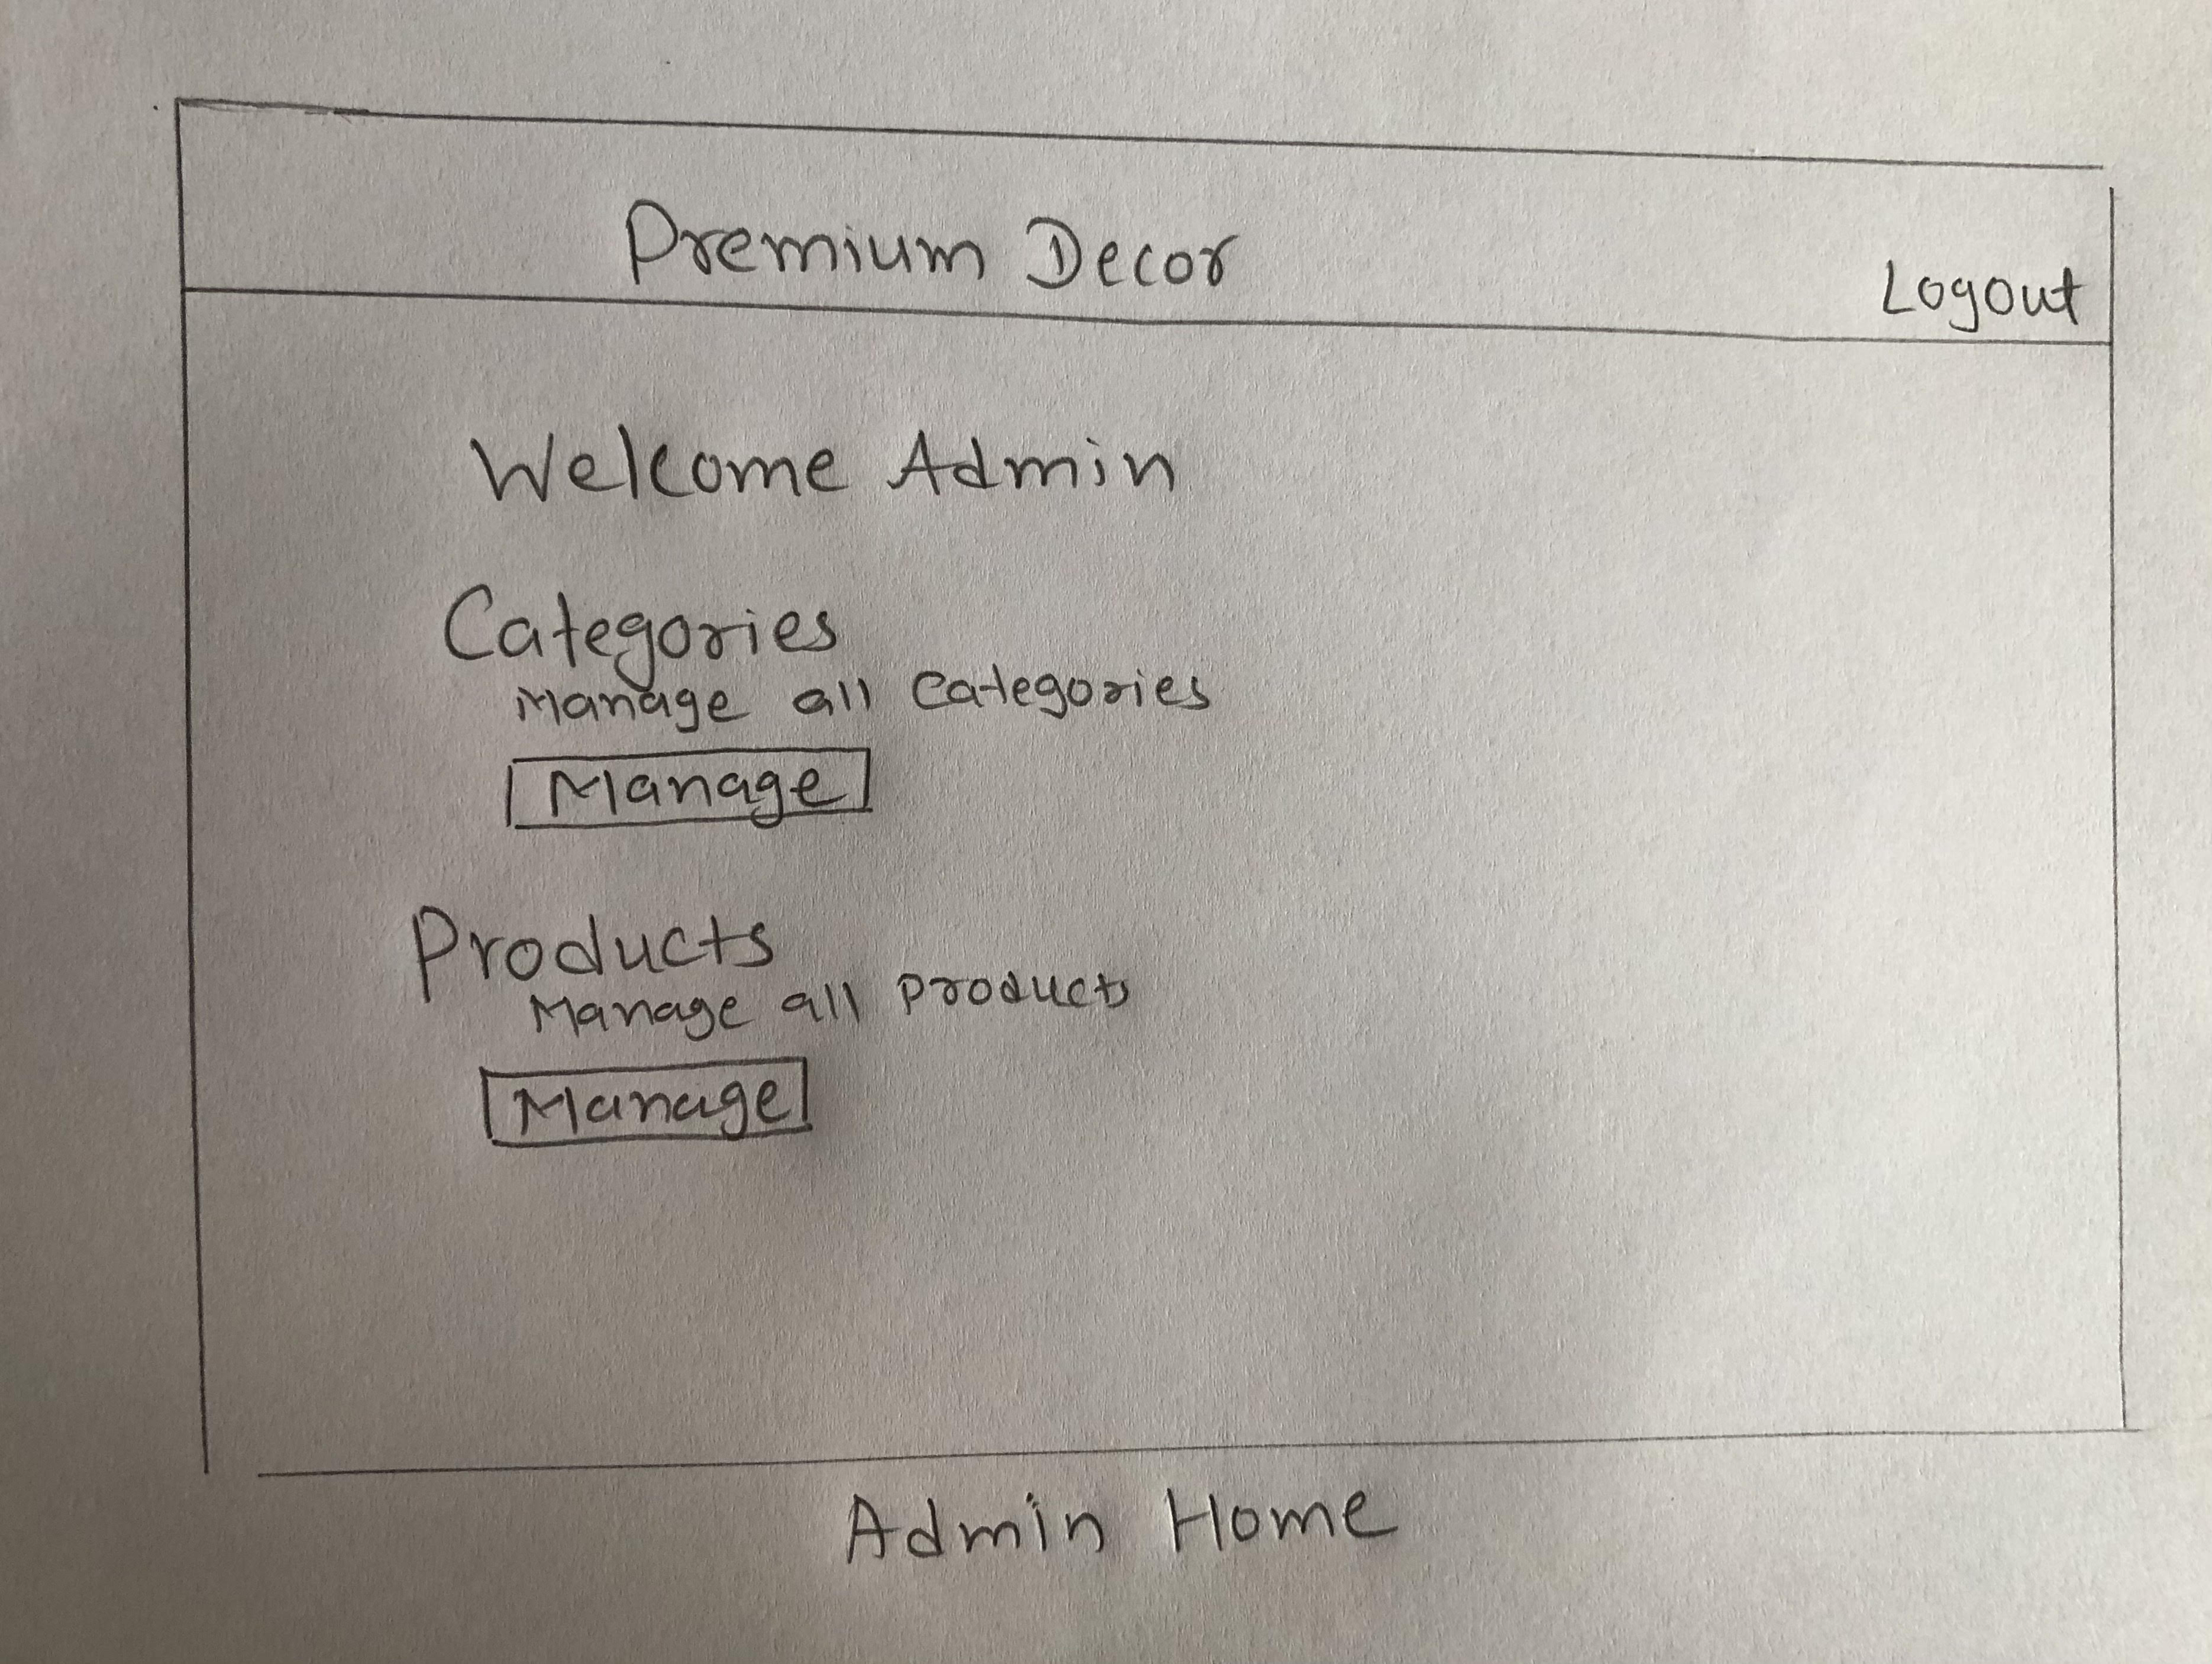 Premium Decor
Logout
Welcome Admin
Categories
Manage all Categories
Manage
Products
Manage all products
Manage
Admin Home